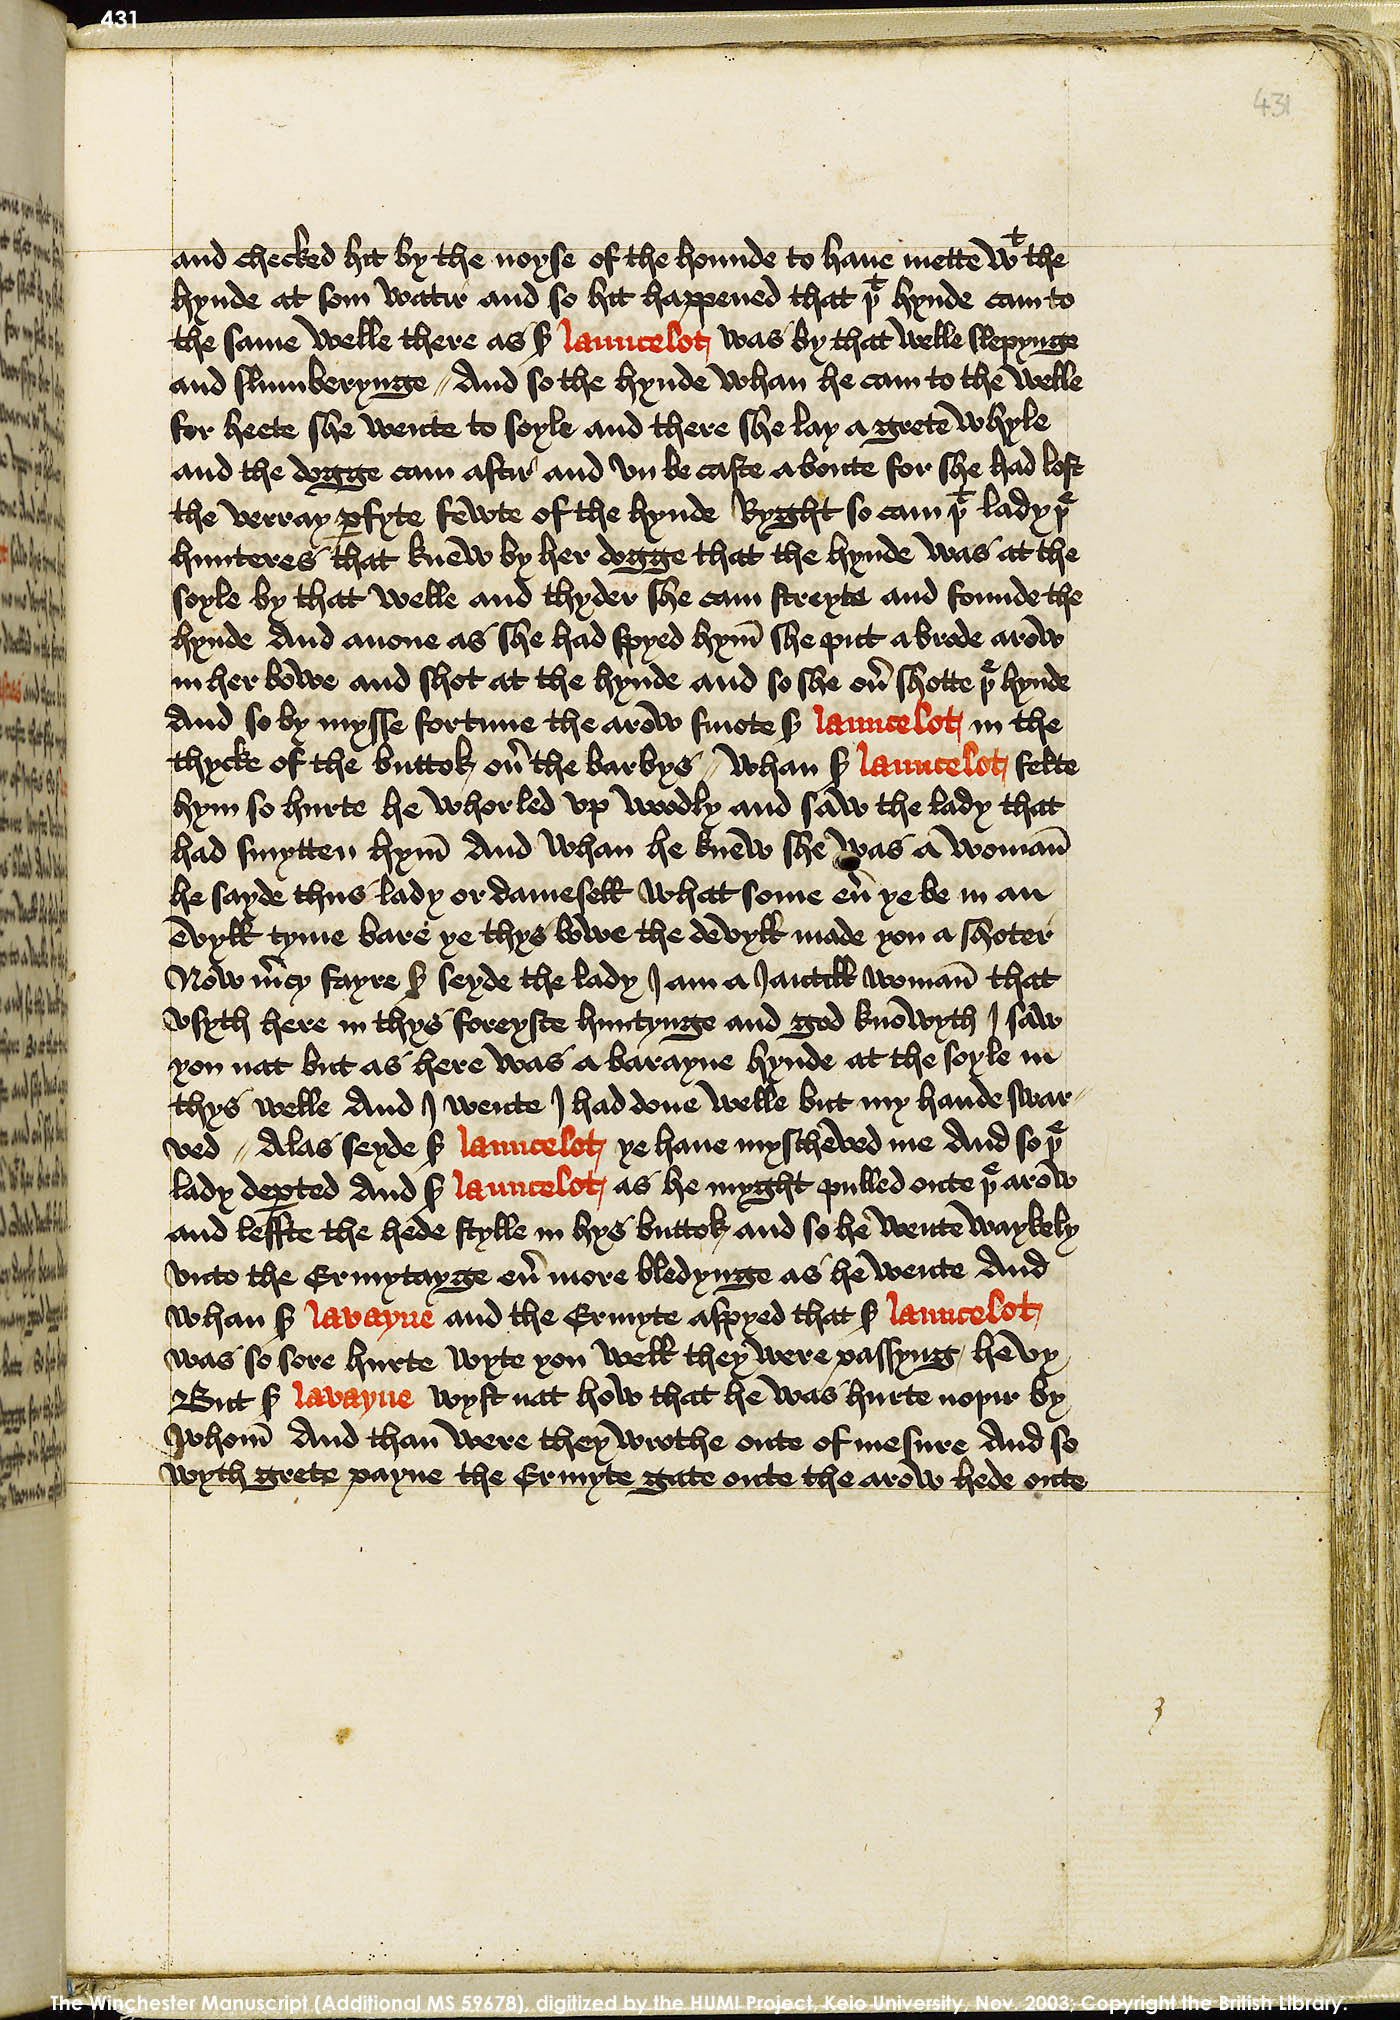 431
431
and checked hit by the noyse of the hounde to haue mette wᵗ the
hynde at som watir and so hit happened that þᵗ hynde cam to
the same welle there as Sʳ launcelot was by that welle slepynge
and slumberynge // And so the hynde whan he cam to the welle
for heete she wente to soyle and there she lay a grete whyle
and the dogge cam aftir and vn be caste aboute for she had lost
the verray ꝑfyte fewte of the hynde Ryght so cam þᵗ lady þᵉ
hunteres that knew by her dogge that the hynde was at the
soyle by that welle and thyder she cam streyte and founde the
hynde And anone as she had spyed hym̄ she put a brode arow
in her bowe and shot at the hynde and so she ou̾ shotte þᵉ hynde
And so by mysse fortune the arow smote Sʳ launcelot in the
thycke of the buttok ou̾ the barbys // Whan Sʳ launcelot felte
hym so hurte he whorled vp woodly and saw the lady that
had smytten hym̄ And whan he knew she was a woman̄
he sayde thus lady or damesell what some eu̾ ye be in an
evyll tyme bare ye thys bowe the devyll made you a shoter
Now m̾cy fayre Sʳ seyde the lady I am a Jantill woman̄ that
vsyth here in thys foreyste huntynge and god knowyth I saw
you nat but as here was a barayne hynde at the soyle in
thys welle And I wente I had done welle but my hande swar-
ved // Alas seyde Sʳ launcelot ye haue myscheved me And so þᵉ
lady deꝑted And Sʳ launcelot as he myght pulled oute þᵉ arow
and leffte the hede stylle in hys buttok and so he wente waykely
vnto the Ermytayge eu̾ more bledynge as he wente And
whan Sʳ lavayne and the Ermyte aspyed that Sʳ launcelot
was so sore hurte wyte you well they were passyng hevy
But Sʳ lavayne wyst nat how that he was hurte noþir by
whom̄ And than were they wrothe oute of mesure And so
wyth grete payne the Ermyte gate oute the arow hede oute
The Winchester Manuscript (Additional MS 59678), digitized by the HUMI Project, Keio University, Nov. 2003; Copyright the British Library.